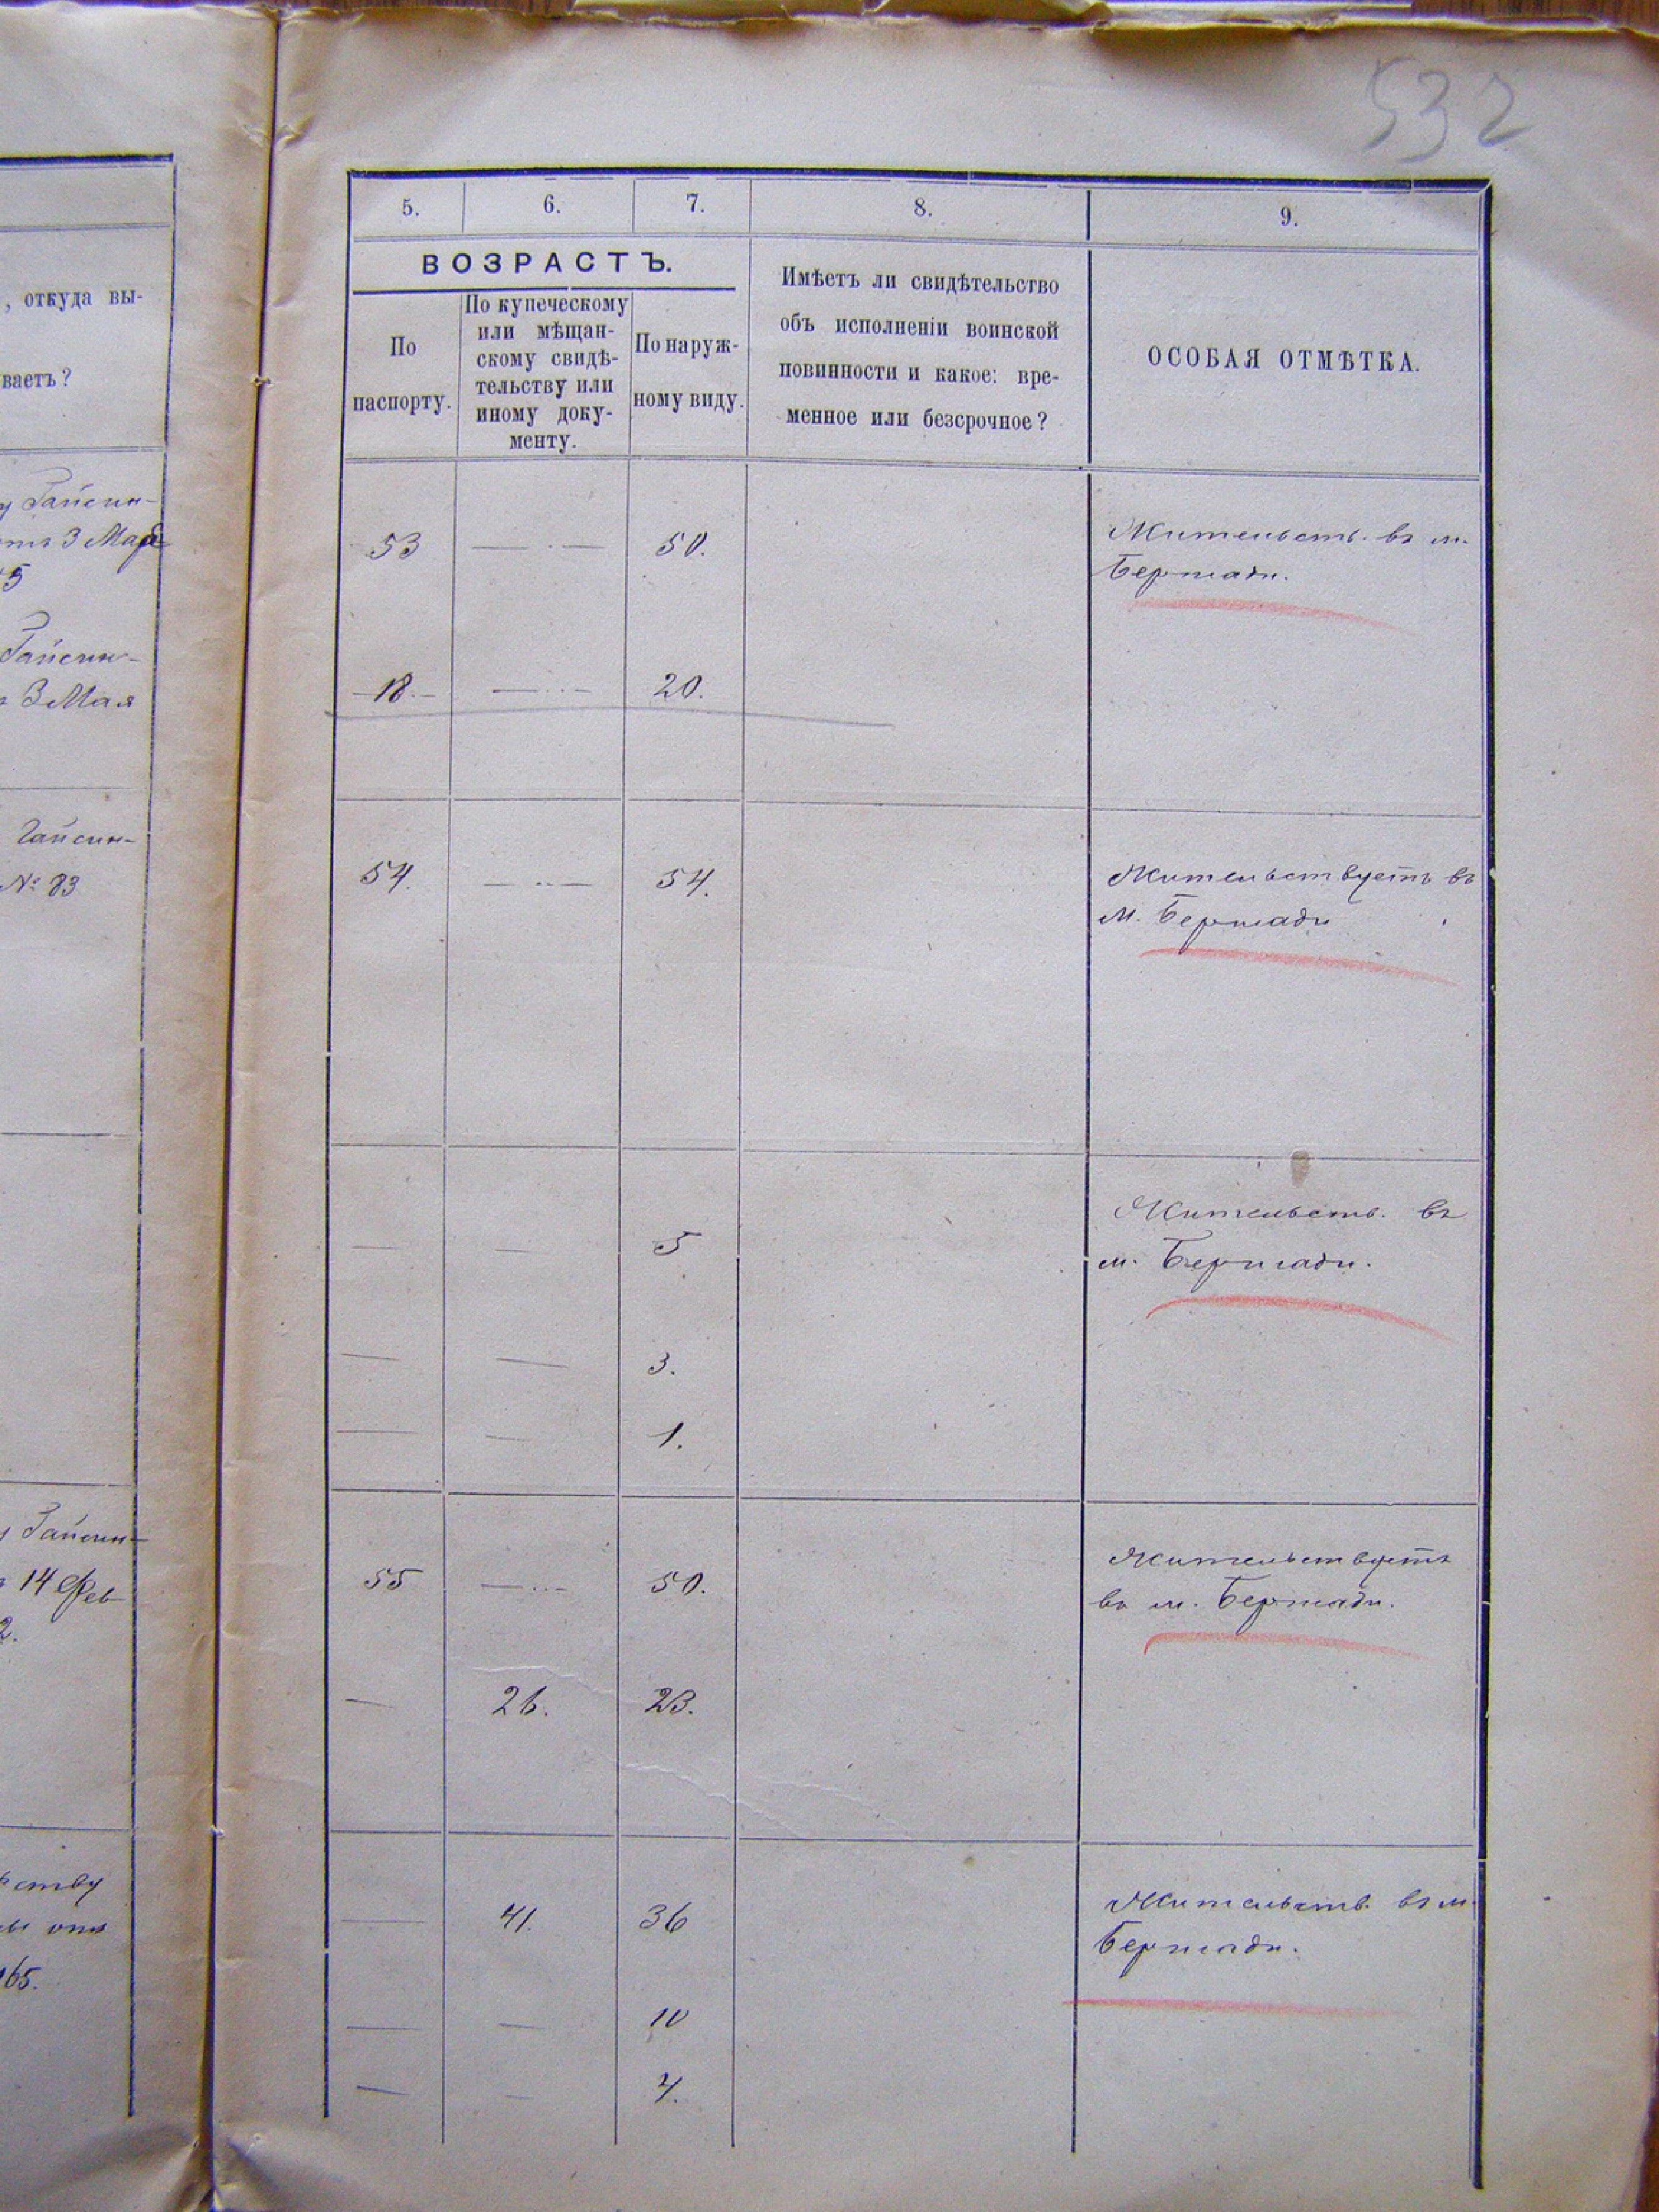 532
, откуда вы-
ваетъ?
Гайсин-
3 Мая
5
Гайсин-
3 Мая
Гайсин-
№ 83
Гайсин-
14 Фев
2.
165.
5. 6. 7. 8. 9.
ВОЗРАСТЪ.
По
паспорту.
По купеческому
или мѣщан-
скому свидѣ-
тельству или
иному доку-
менту.
По наруж-
ному виду.
Имѣетъ ли свидѣтельство
объ исполненіи воинской
повинности и какое: вре-
менное или безсрочное?
ОСОБАЯ ОТМѢТКА.
53 — · — 50. Жительств. въ м.
Бершади.
18. — ·· — 20.
54. — ·· — 54. Жительствуетъ въ
м. Бершади
— — 5 Жительств. въ
м. Бершади.
— — 3.
— — 1.
55 — ··· 50. Жительствуетъ
въ м. Бершади.
— 26. 23.
— 41. 36 Жительств. въ м.
Бершади.
— — 10
— — 4.